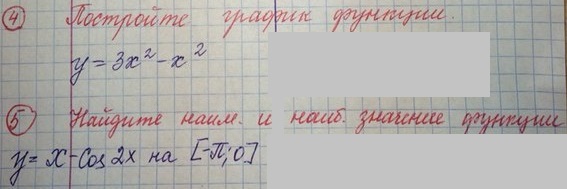 ④ Постройте график функции.
y = 3x² - x²
⑤ Найдите наим. и наиб. значение функции
y = x - cos 2x на [-П; 0]